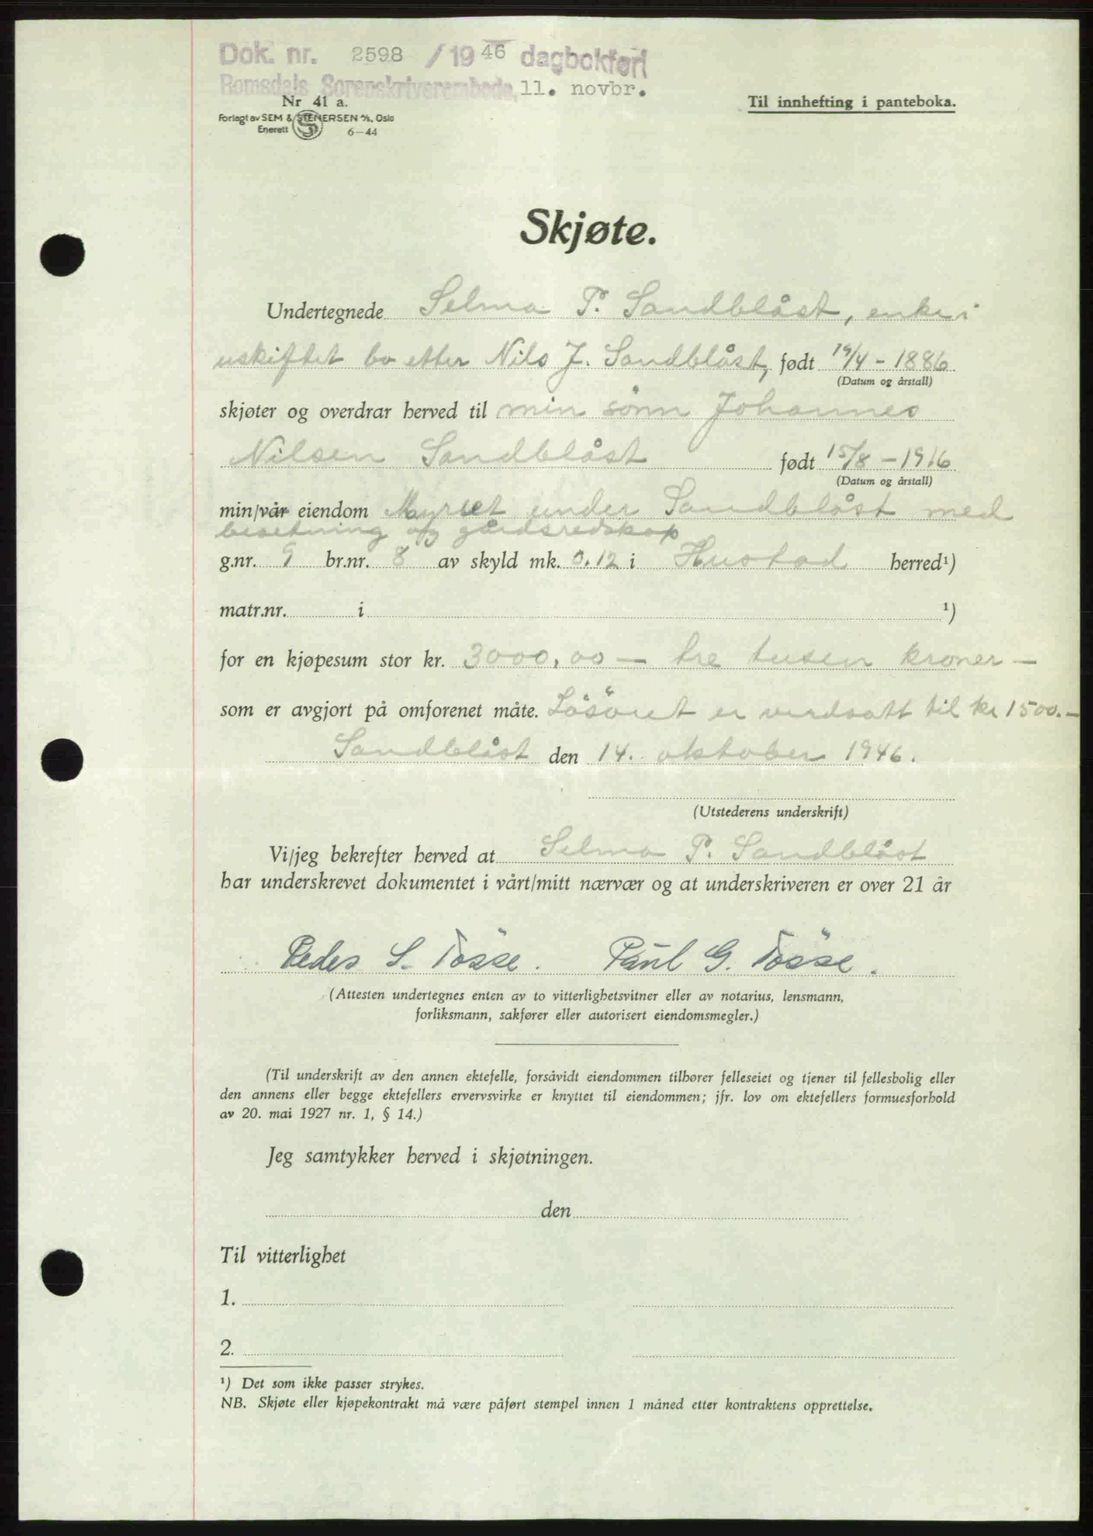 Dok. nr. 2598 / 1946 dagbokført
Romsdals Sorenskriverembede, 11. novbr.
Nr 41 a.
Forlagt av SEM & STENERSEN A/S, Oslo
Enerett 6-44
Til innhefting i panteboka.
Skjøte.
Undertegnede Selma P. Sandblåst, enke i
uskiftet bo etter Nils J. Sandblåst, født 19/4 - 1886
(Datum og årstall)
skjøter og overdrar herved til min sönn Johannes
Nilsen Sandblåst født 15/8 - 1916
(Datum og årstall)
min/vår eiendom Myrset under Sandblåst med
besetning og gårdsredskap
g.nr. 9 br.nr. 8 av skyld mk. 0.12 i Hustad herred¹)
matr.nr. i ¹)
for en kjøpesum stor kr. 3000,00 — tre tusen kroner —
som er avgjort på omforenet måte. Lösöret er verdsatt til kr 1500.—
Sandblåst den 14. oktober 1946.
(Utstederens underskrift)
Vi/jeg bekrefter herved at Selma P. Sandblåst
har underskrevet dokumentet i vårt/mitt nærvær og at underskriveren er over 21 år
Peder S. Tösse. Paul G. Tösse.
(Attesten undertegnes enten av to vitterlighetsvitner eller av notarius, lensmann,
forliksmann, sakfører eller autorisert eiendomsmegler.)
(Til underskrift av den annen ektefelle, forsåvidt eiendommen tilhører felleseiet og tjener til fellesbolig eller
den annens eller begge ektefellers ervervsvirke er knyttet til eiendommen; jfr. lov om ektefellers formuesforhold
av 20. mai 1927 nr. 1, § 14.)
Jeg samtykker herved i skjøtningen.
den
Til vitterlighet
1.
2.
¹) Det som ikke passer strykes.
NB. Skjøte eller kjøpekontrakt må være påført stempel innen 1 måned etter kontraktens opprettelse.